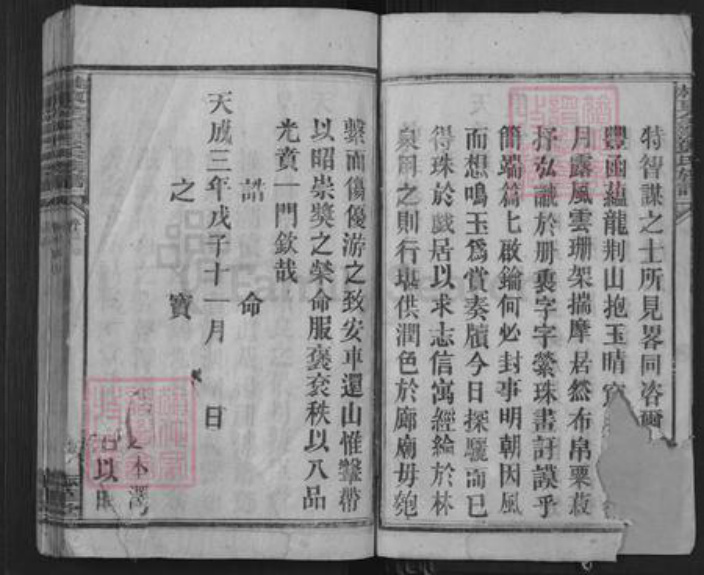 特智謀之士所見畧同咨爾
豐函蘊龍荆山抱玉晴
月露風雲珊架揣摩居然布帛粟菽
抒弘議於册裏字字縈珠畫訏謨乎
簡端篇匕啟鑰何必封事明朝因風
而想鳴玉爲賞奏牘今日探驪而已
得珠於戯居以求志信寓經綸於林
泉用之則行堪供潤色於廊廟毋匏
繫而傷優游之致安車還山惟鞶帶
以昭崇奬之榮命服褒衮秩以八品
光賁一門欽哉
誥命
天成三年戊子十一月 日
之寶
本澤
以